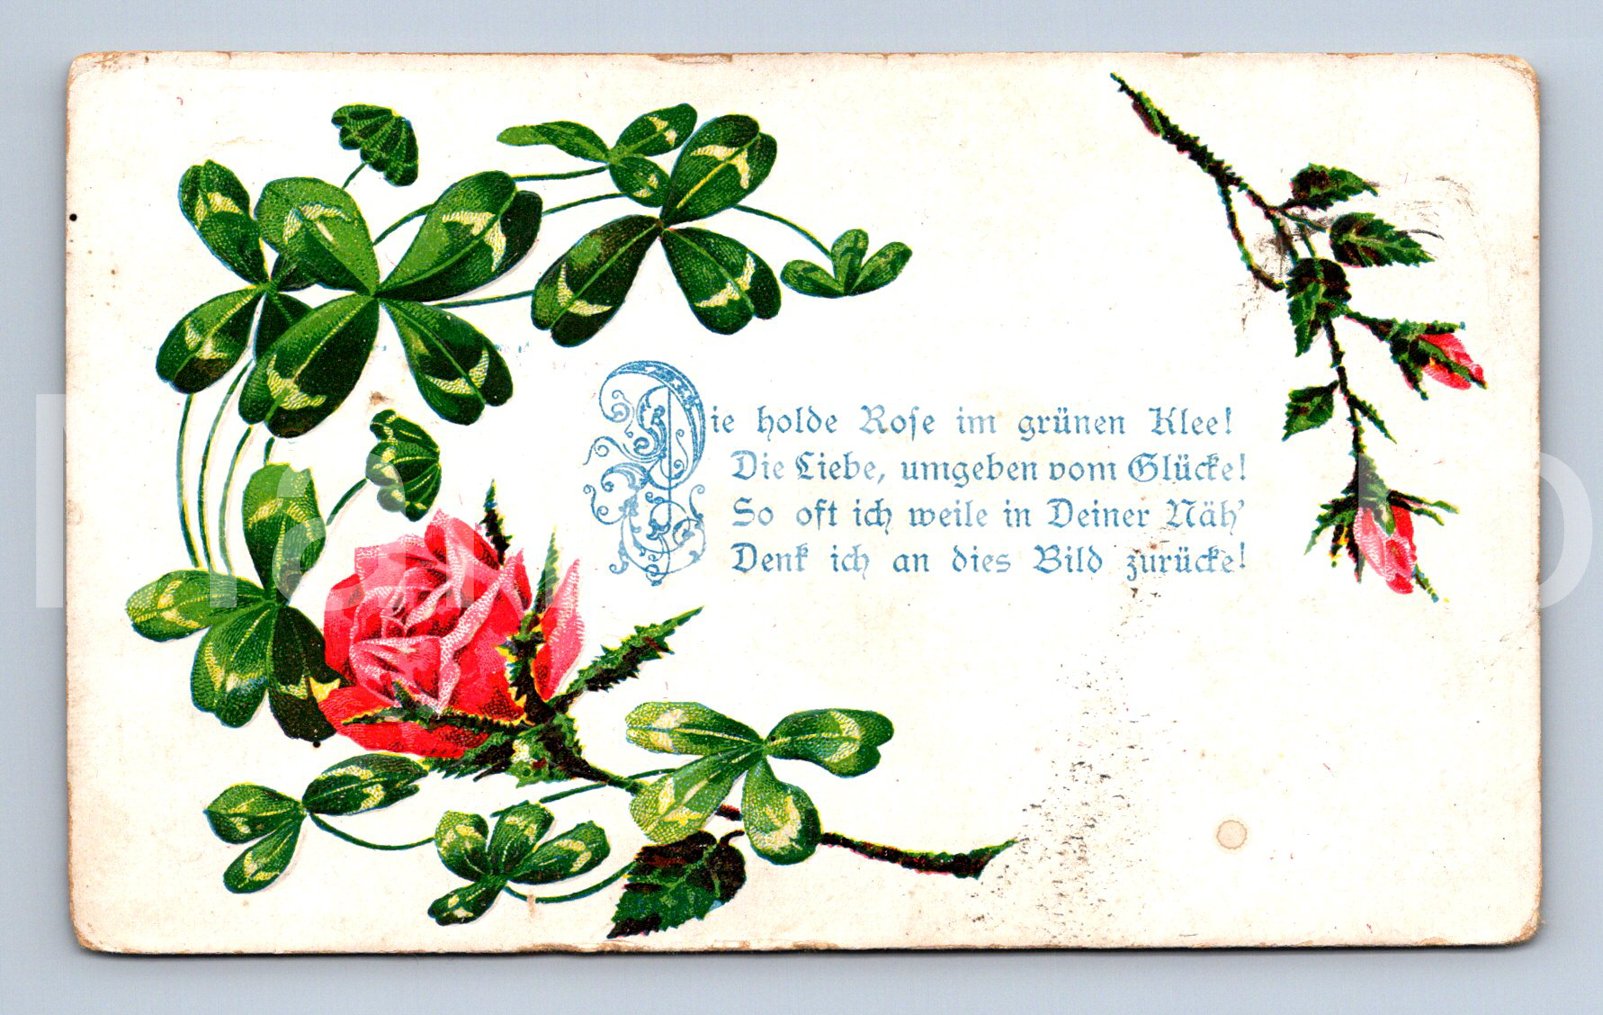 Die holde Rose im grünen Klee!
Die Liebe, umgeben vom Glücke!
So oft ich weile in Deiner Näh'
Denk ich an dies Bild zurücke!